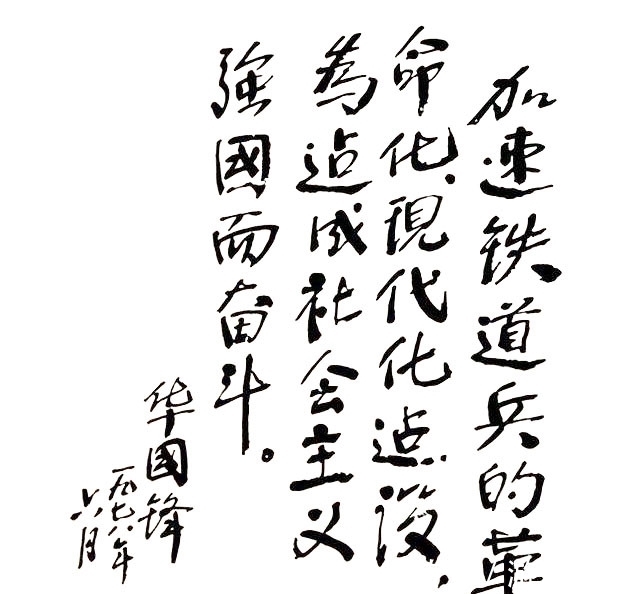 加速铁道兵的革
命化、現代化迠设,
為迠成社会主义
強國而奋斗。
华國锋
一九七八年
六月